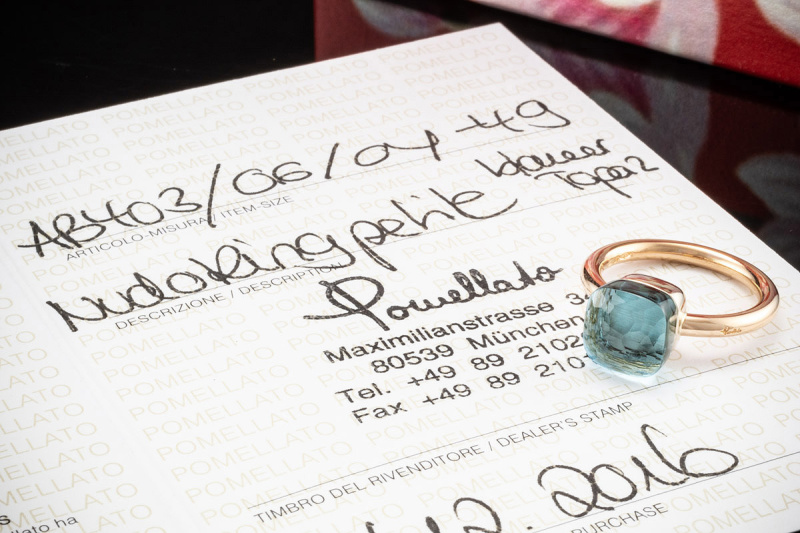 AB403/06/04 -49
ARTICOLO-MISURA / ITEM-SIZE
blauer
Topas
Nudo Ring petite
DESCRIZIONE / DESCRIPTION
Pomellato
Maximilianstrasse
80539 München
Tel. +49 89 2102
Fax +49 89 210
TIMBRO DEL RIVENDITORE / DEALER'S STAMP
12.2016
PURCHASE
ellato ha
POMELLATO